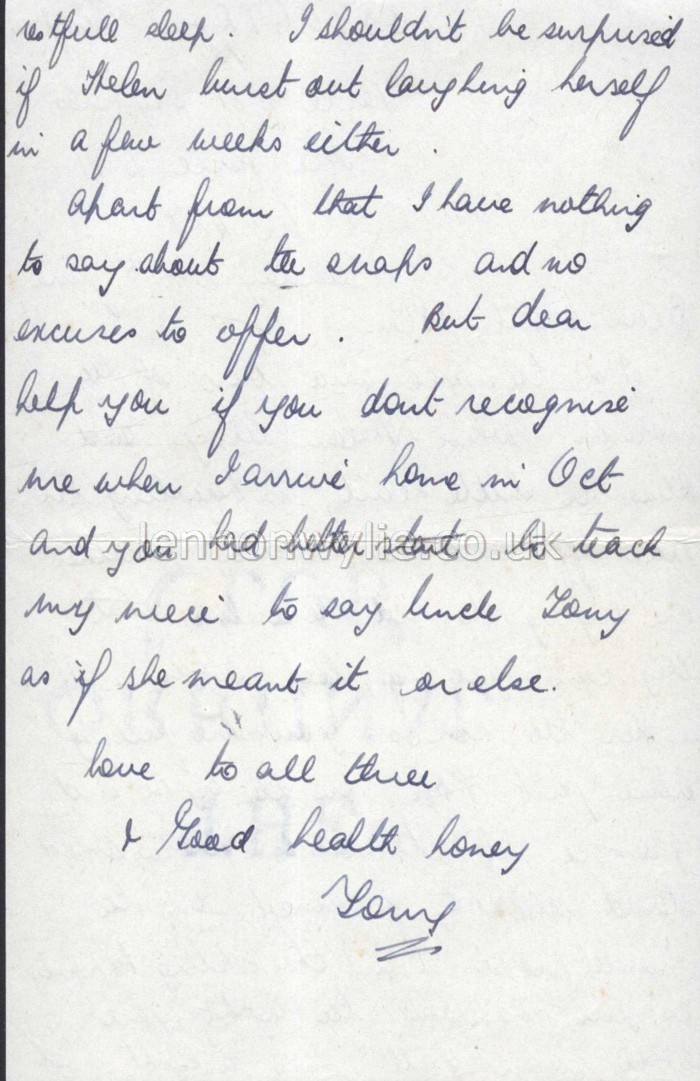 restfull sleep. I shouldn't be surprised
if Helen burst out laughing herself
in a few weeks either.
apart from that I have nothing
to say about the snaps and no
excuses to offer. But dear
help you if you dont recognise
me when I arrive home in Oct
and you had better start to teach
my niece to say Uncle Tony
as if she meant it or else.
love to all three
& Good health honey
Tony
lennonwylie.co.uk